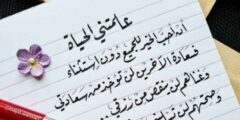 علمتني الحياة
أن أحب الخير للجميع دون استثناء
فسعادة الآخرين لن تؤخذ من سعادتي
وغناهم لن ينقص من رزقي
وصحتهم لن